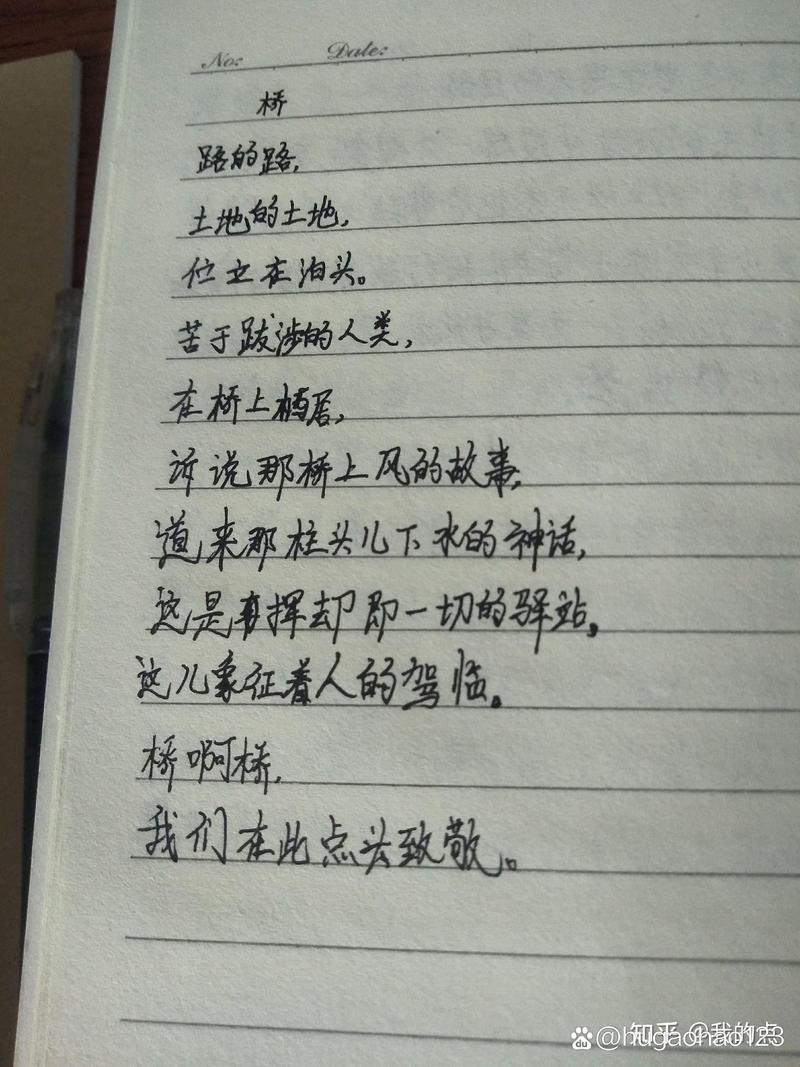 No: Date:
桥
路的路,
土地的土地,
位立在泊头。
苦于跋涉的人类,
在桥上栖居,
诉说那桥上风的故事,
道来那柱头儿下水的神话,
这是挥却即一切的驿站,
这儿象征着人的驾临。
桥啊桥,
我们在此点头致敬。
知乎 @我的点
du @hugaohao123